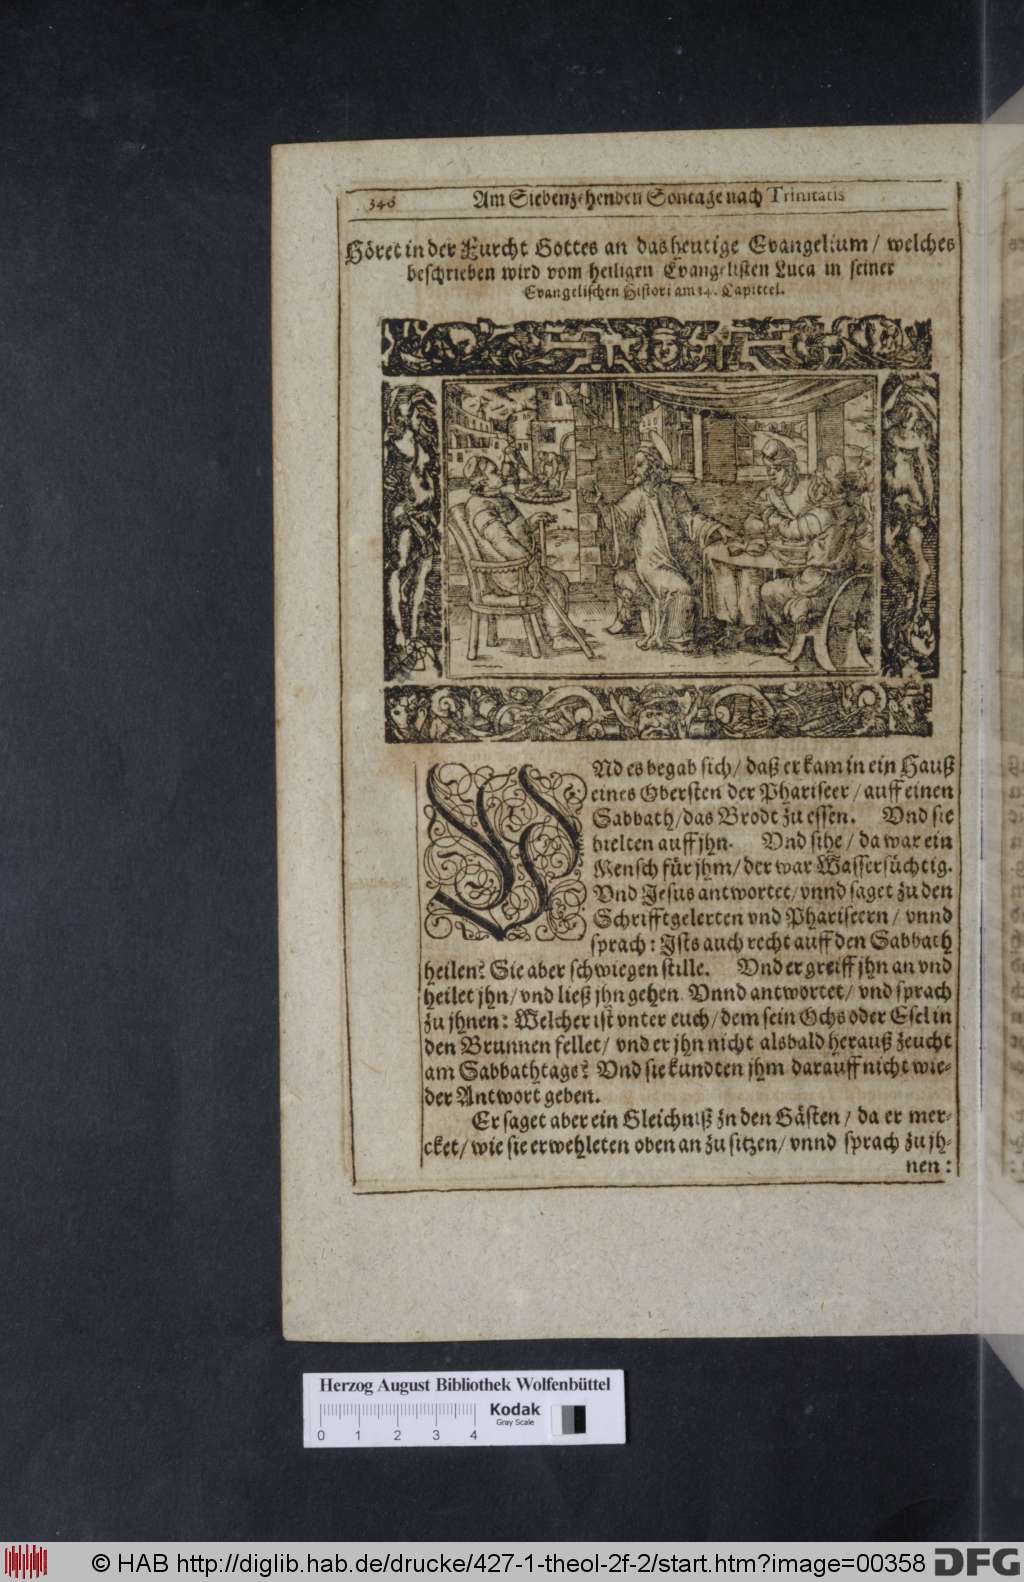 346
Am Siebenzehenden Sontage nach Trinitatis
Höret in der Furcht Gottes an das heutige Evangelium / welches
beschrieben wird vom heiligen Evangelisten Luca in seiner
Evangelischen Histori am 14. Capittel.
VNd es begab sich / daß er kam in ein Hauß
eines Obersten der Phariseer / auff einen
Sabbath / das Brodt zu essen. Vnd sie
hielten auff jhn. Vnd sihe / da war ein
Mensch für jhm / der war Wassersüchtig.
Vnd Jesus antwortet / vnnd saget zu den
Schrifftgelerten vnd Phariseern / vnnd
sprach: Ists auch recht auff den Sabbath
heilen? Sie aber schwiegen stille. Vnd er greiff jhn an vnd
heilet jhn / vnd ließ jhn gehen. Vnnd antwortet / vnd sprach
zu jhnen: Welcher ist vnter euch / dem sein Ochs oder Esel in
den Brunnen fellet / vnd er jhn nicht alsbald herauß zeucht
am Sabbathtage? Vnd sie kundten jhm darauff nicht wie-
der Antwort geben.
Er saget aber ein Gleichniß zn den Gästen / da er mer-
cket / wie sie erwehleten oben an zu sitzen / vnnd sprach zu jh-
nen:
Herzog August Bibliothek Wolfenbüttel
0 1 2 3 4
Kodak
Gray Scale
© HAB http://diglib.hab.de/drucke/427-1-theol-2f-2/start.htm?image=00358
DFG